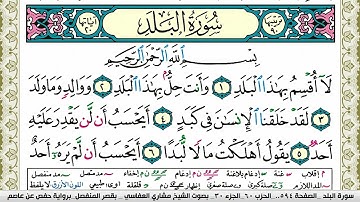 سُورَةُ البَلَدِ
بِسْمِ ٱللَّهِ ٱلرَّحْمَٰنِ ٱلرَّحِيمِ
لَآ أُقْسِمُ بِهَٰذَا ٱلْبَلَدِ ١ وَأَنتَ حِلٌّۢ بِهَٰذَا ٱلْبَلَدِ ٢ وَوَالِدٍ وَمَا وَلَدَ
٣ لَقَدْ خَلَقْنَا ٱلْإِنسَٰنَ فِي كَبَدٍ ٤ أَيَحْسَبُ أَن لَّن يَقْدِرَ عَلَيْهِ
أَحَدٌ ٥ يَقُولُ أَهْلَكْتُ مَالًا لُّبَدًا ٦ أَيَحْسَبُ أَن لَّمْ يَرَهُۥٓ أَحَدٌ
سورة البلد، الصفحة ٥٩٤، الحزب ٦٠، الجزء ٣٠، بصوت الشيخ مشاري العفاسي، بقصر المنفصل برواية حفص عن عاصم